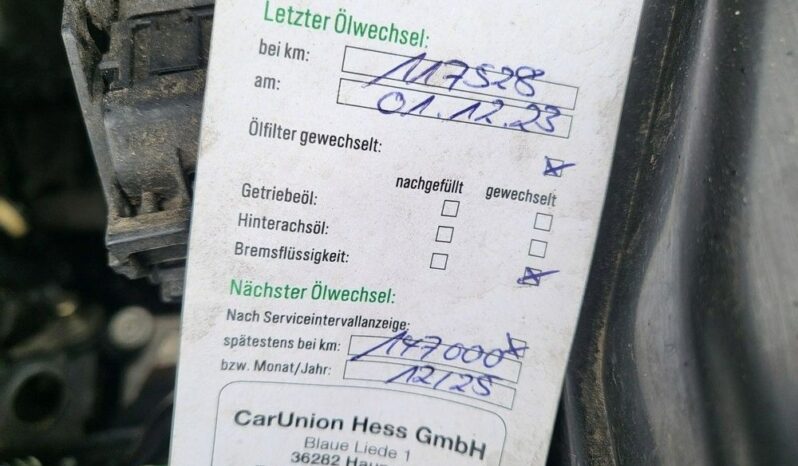 Letzter Ölwechsel:
bei km: 117528
am: 01.12.23
Ölfilter gewechselt:
nachgefüllt gewechselt
Getriebeöl:
Hinterachsöl:
Bremsflüssigkeit:
Nächster Ölwechsel:
Nach Serviceintervallanzeige:
spätestens bei km: 147000
bzw. Monat/Jahr: 12/25
CarUnion Hess GmbH
Blaue Liede 1
36282